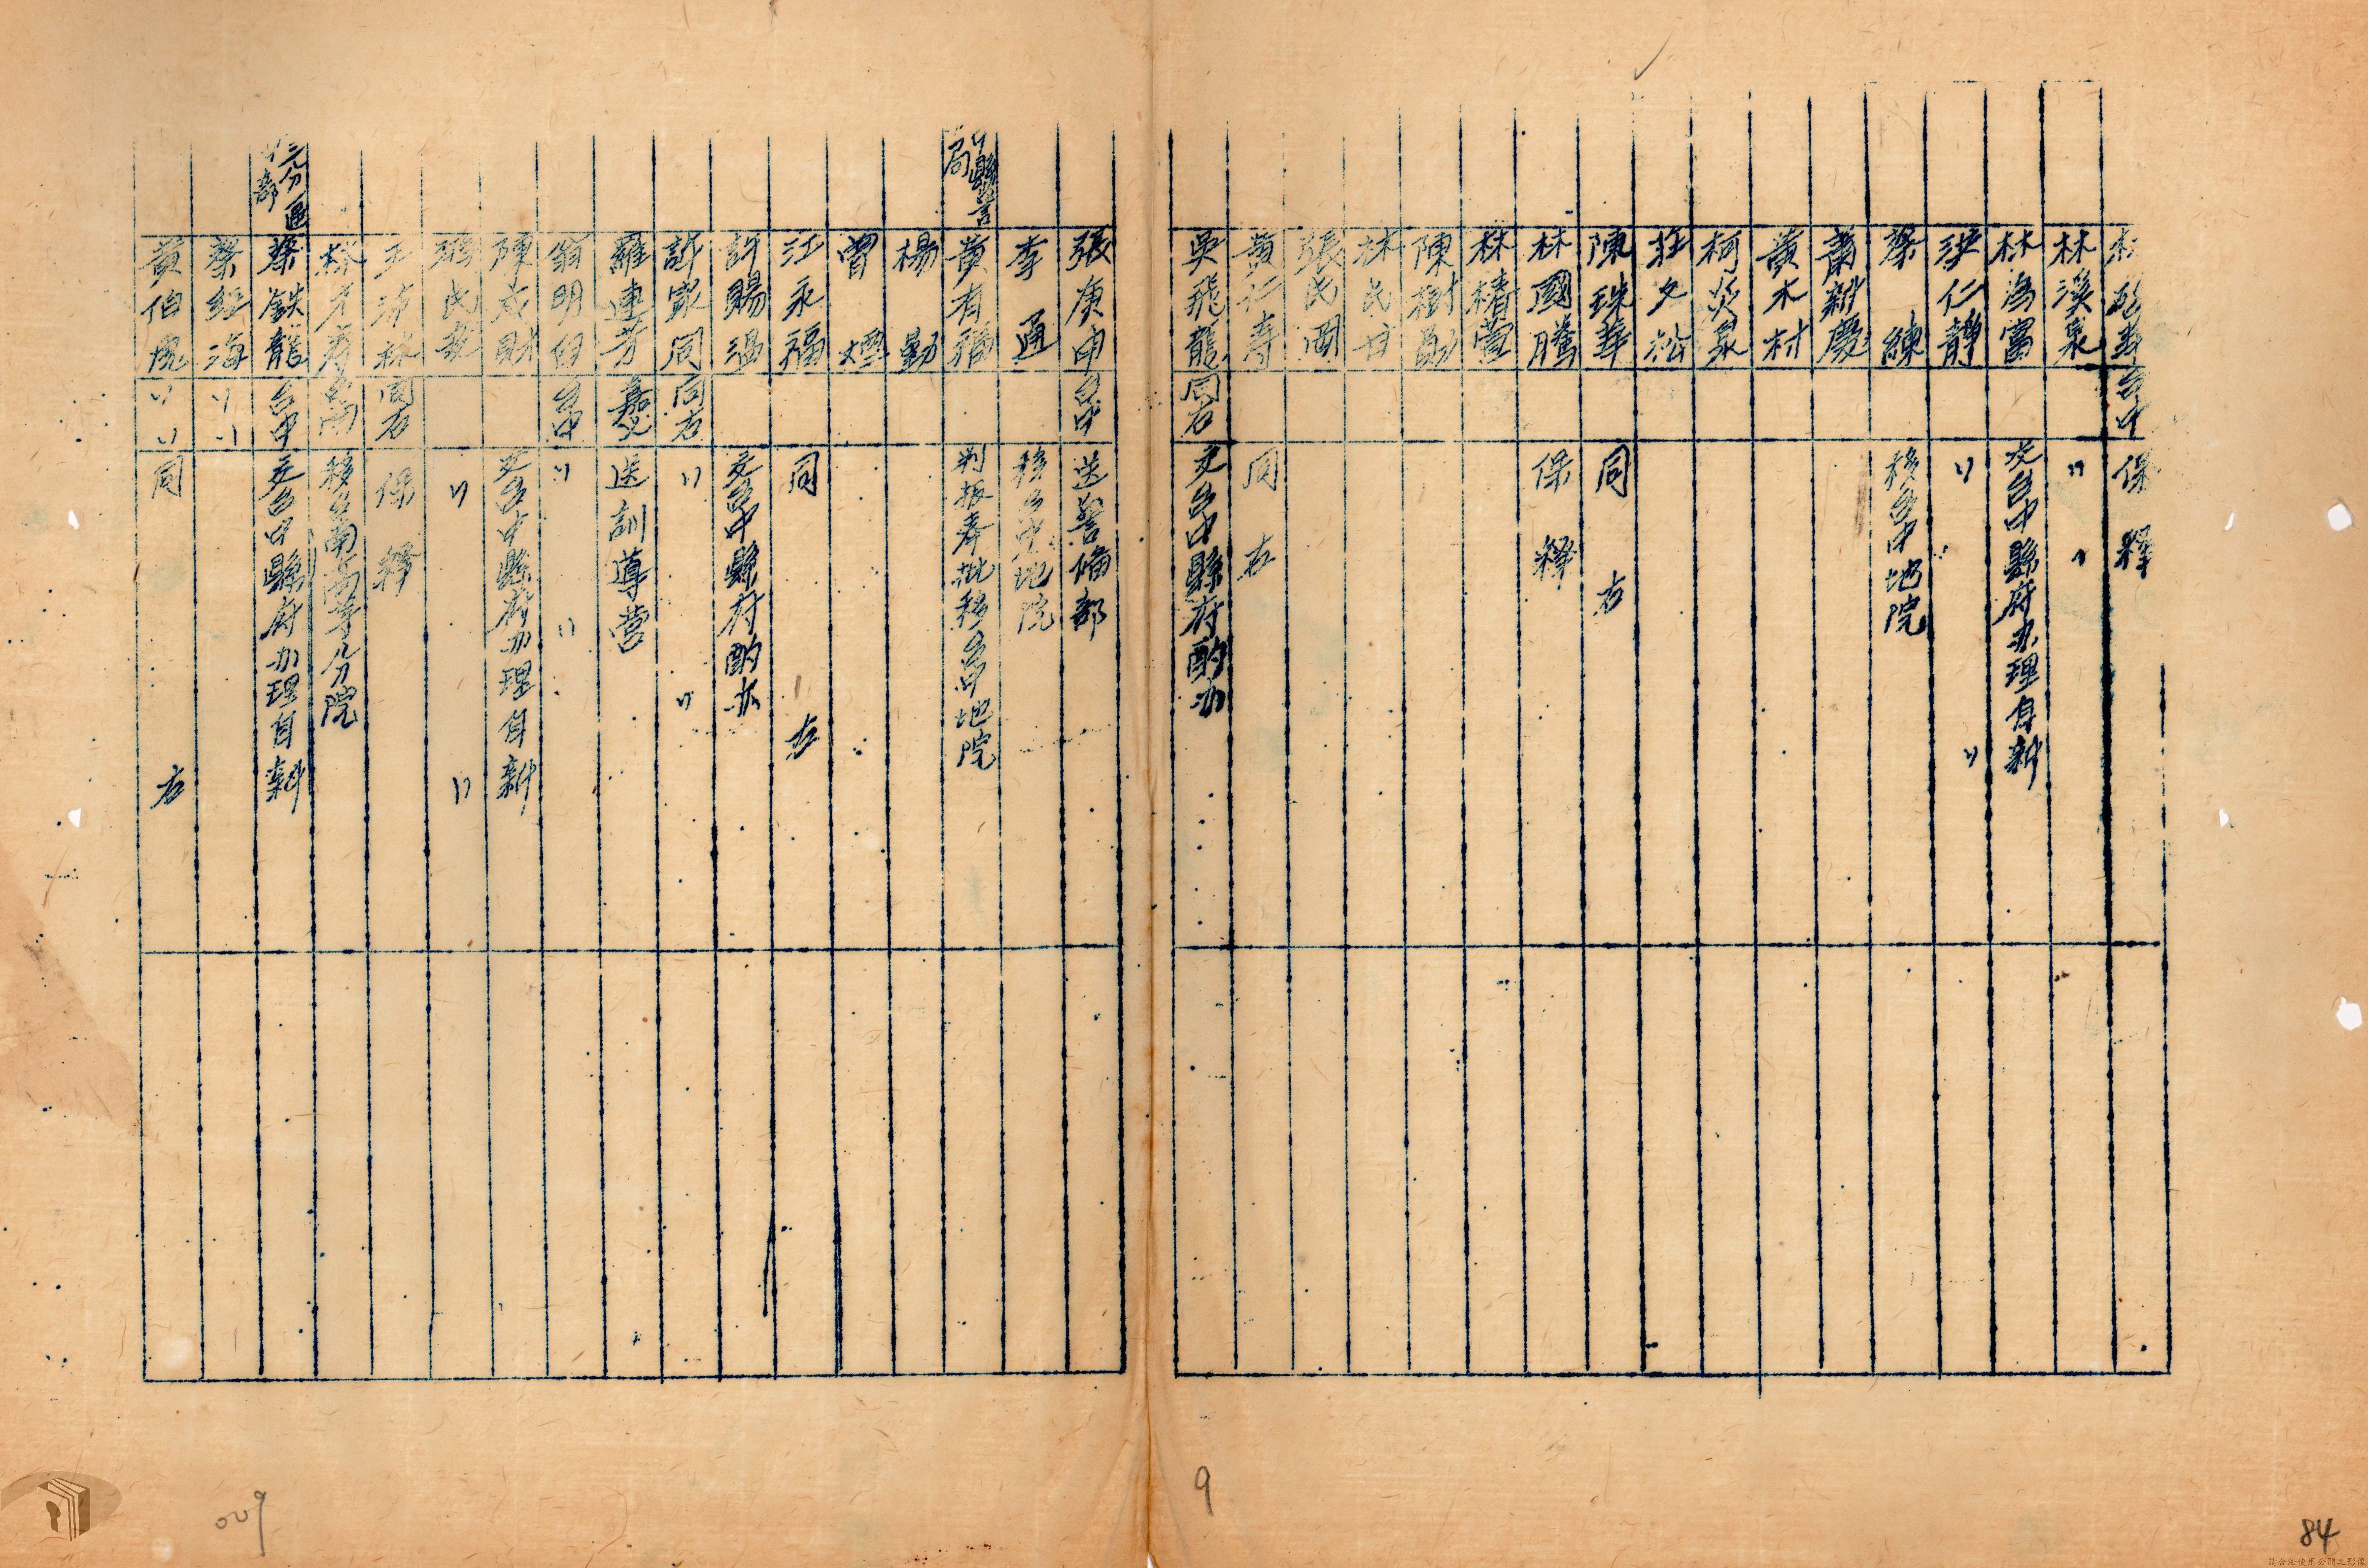 台中 保釋
林溪泉 〃 〃
林為富 交台中縣府办理自新
洪仁靜 〃 〃
蔡練 移台中地院
蕭新慶
黃木村
柯炎泉
莊文松
陳珠華 同右
林國騰 保釋
林椿萱
陳樹勛
林民甘
張民国
黃仁壽 同右
吳飛龍 同右 交台中縣府酌办
張庚申 台中 送警備部
李通 移台中地院
縣警局 黃有福 判抜奉批移台中地院
楊勤
曾煙
江永福 同右
許賜温 交台中縣府酌办
許家同 同右 〃 〃
羅連芳 嘉义 送訓導营
翁明 台中 〃 〃
陳 財 交台中縣府办理自新
民 〃 〃
王 林 同右 保釋
林 台南 移台南高等分院
蔡鉄龍 台中 交台中縣府办理自新
蔡經海 〃 〃
黃伯 〃 〃 同右
009
9
84
請合法使用公開之影像